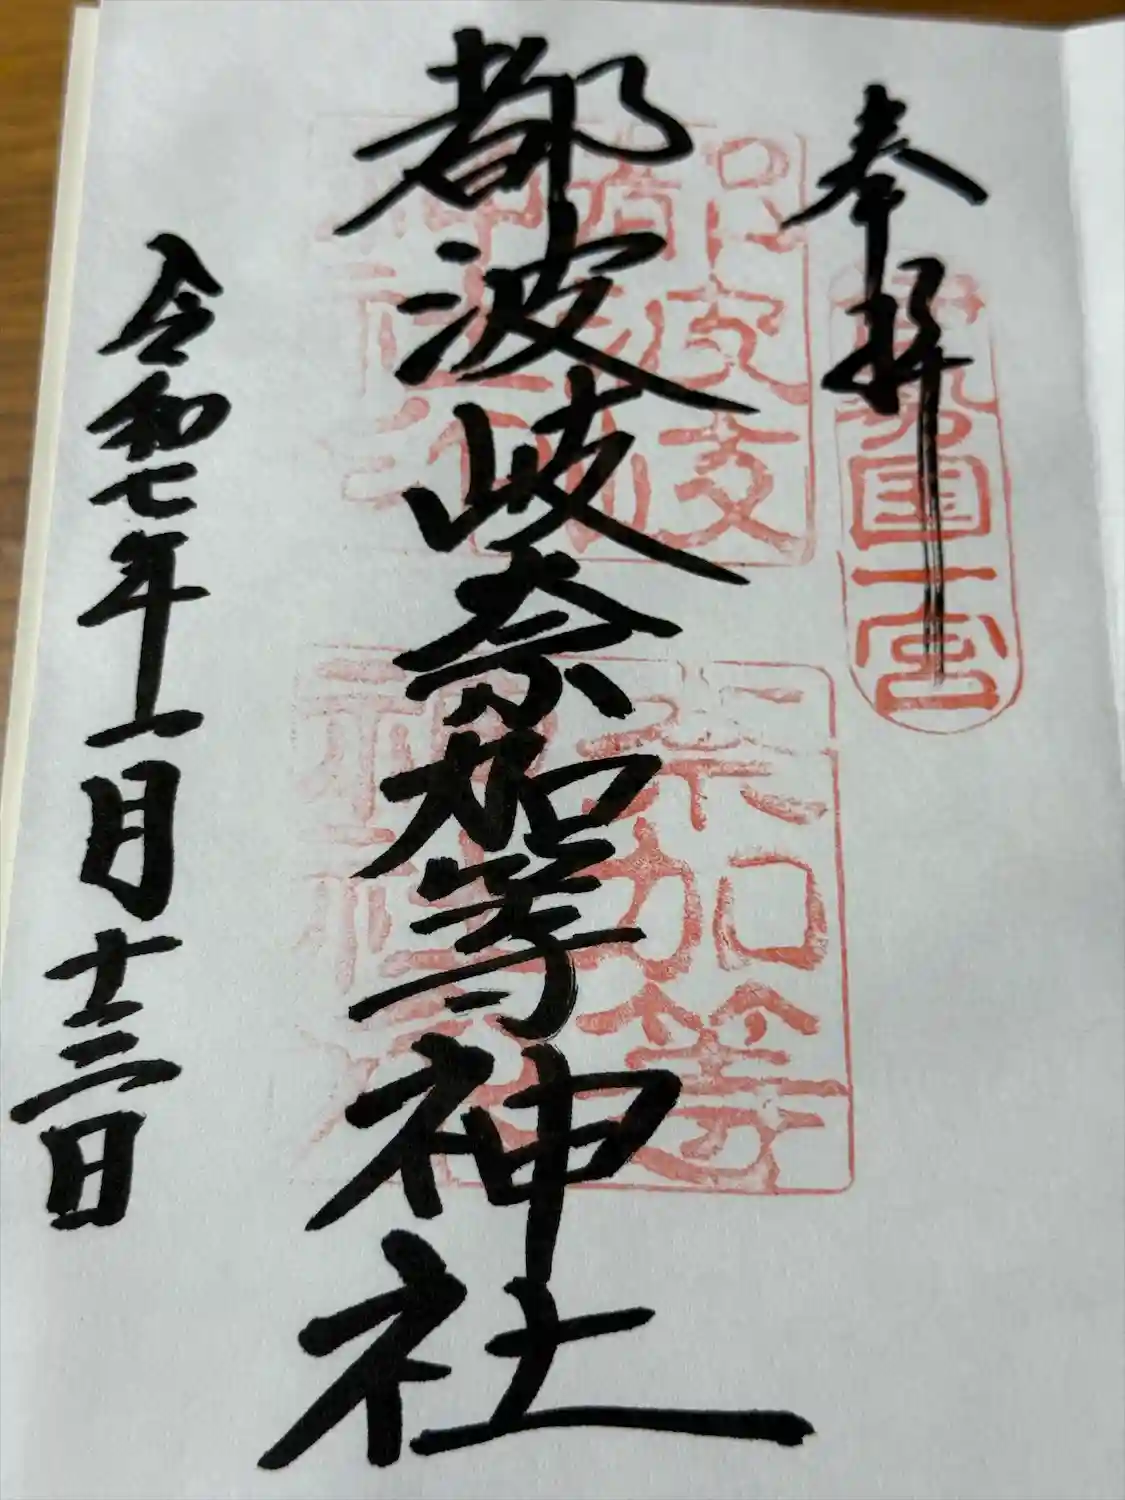 奉拝
勢国一宮
都波岐奈加等神社
都波岐
奈加等
令和七年一月十三日